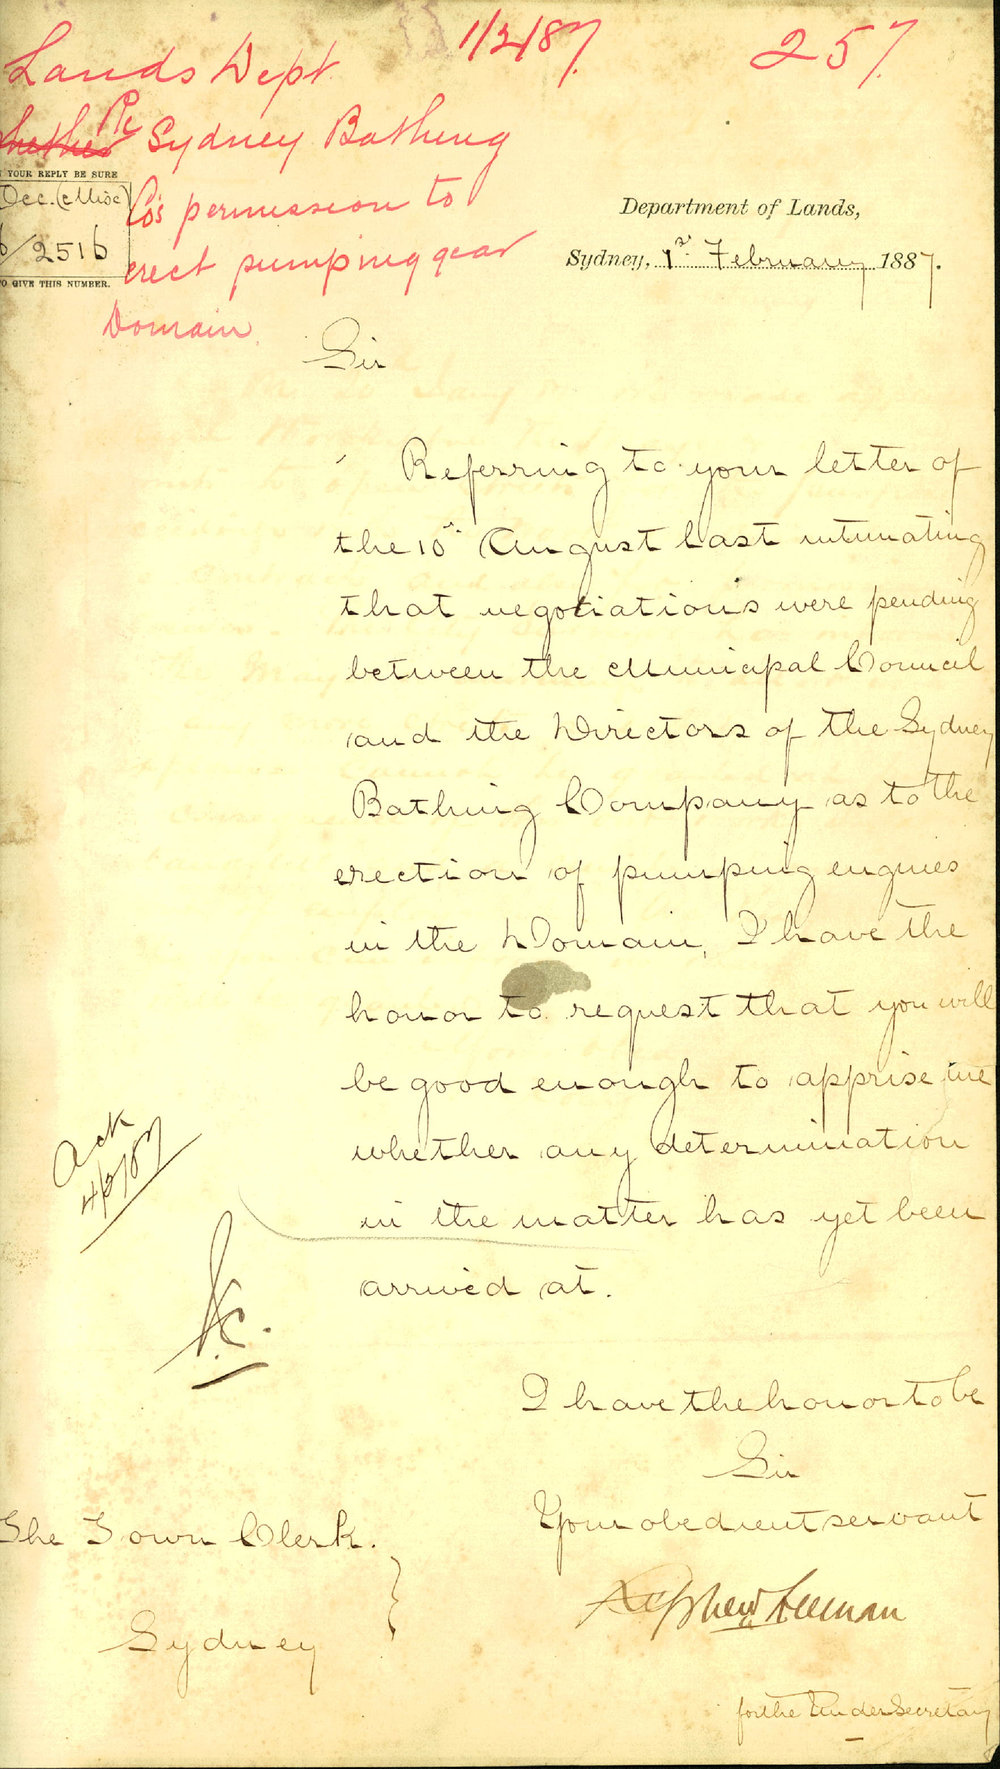 Lands Dept 1/2/87. 257.
Re Sydney Bathing
YOUR REPLY BE SURE
Occ. (Misc)
/2516
TO GIVE THIS NUMBER.
Co's permission to
erect pumping gear
Domain.
Department of Lands,
Sydney, 1st February 1887.
Sir
Referring to your letter of
the 10th August last intimating
that negotiations were pending
between the Municipal Council
and the Directors of the Sydney
Bathing Company as to the
erection of pumping engines
in the Domain, I have the
honor to request that you will
be good enough to apprise me
whether any determination
in the matter has yet been
arrived at.
Ack
4/2/87
I have the honor to be
Sir
Your obedient servant
Freeman
for the Under Secretary
The Town Clerk.
Sydney